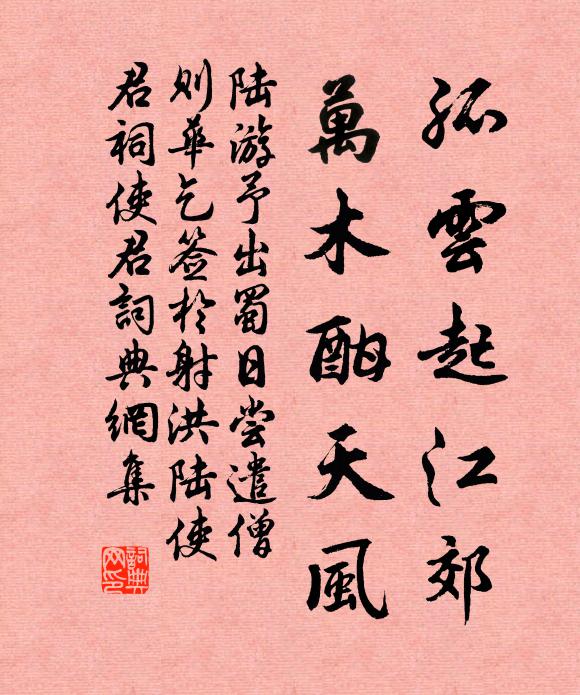 孤雲起江郊
萬木酣天風
陸游予出蜀日尝遣僧
则華乞签於射洪陆使
君祠使君詞典網集
詞典网印